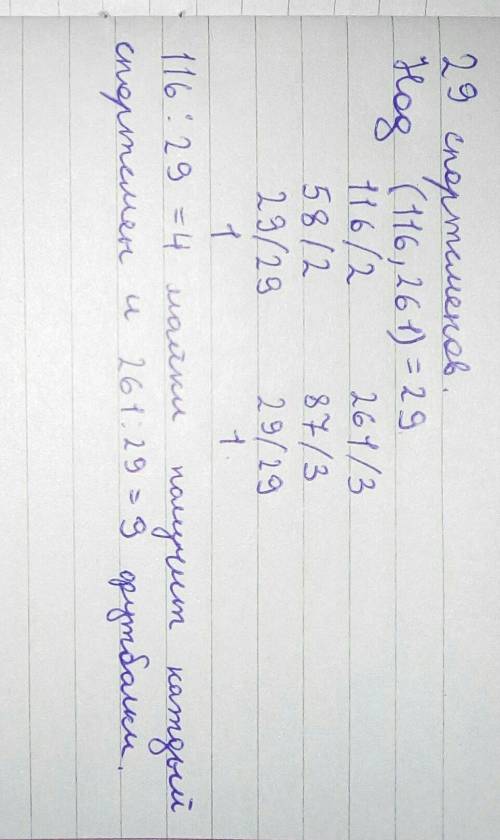 29 спортсменов.
Нод (116, 261) = 29
116/2 261/3
58/2 87/3
29/29 29/29
1 1
116 : 29 = 4 майки получит каждый
спортсмен и 261 : 29 = 9 футболки.